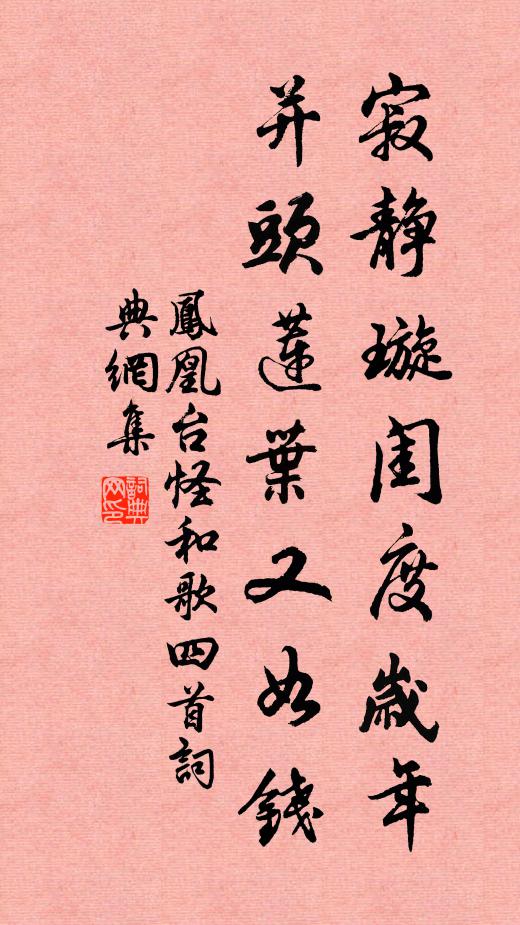 寂靜璇閨度歲年
并頭蓮葉又如錢
鳳凰台怪和歌四首詞
典網集
詞典網印